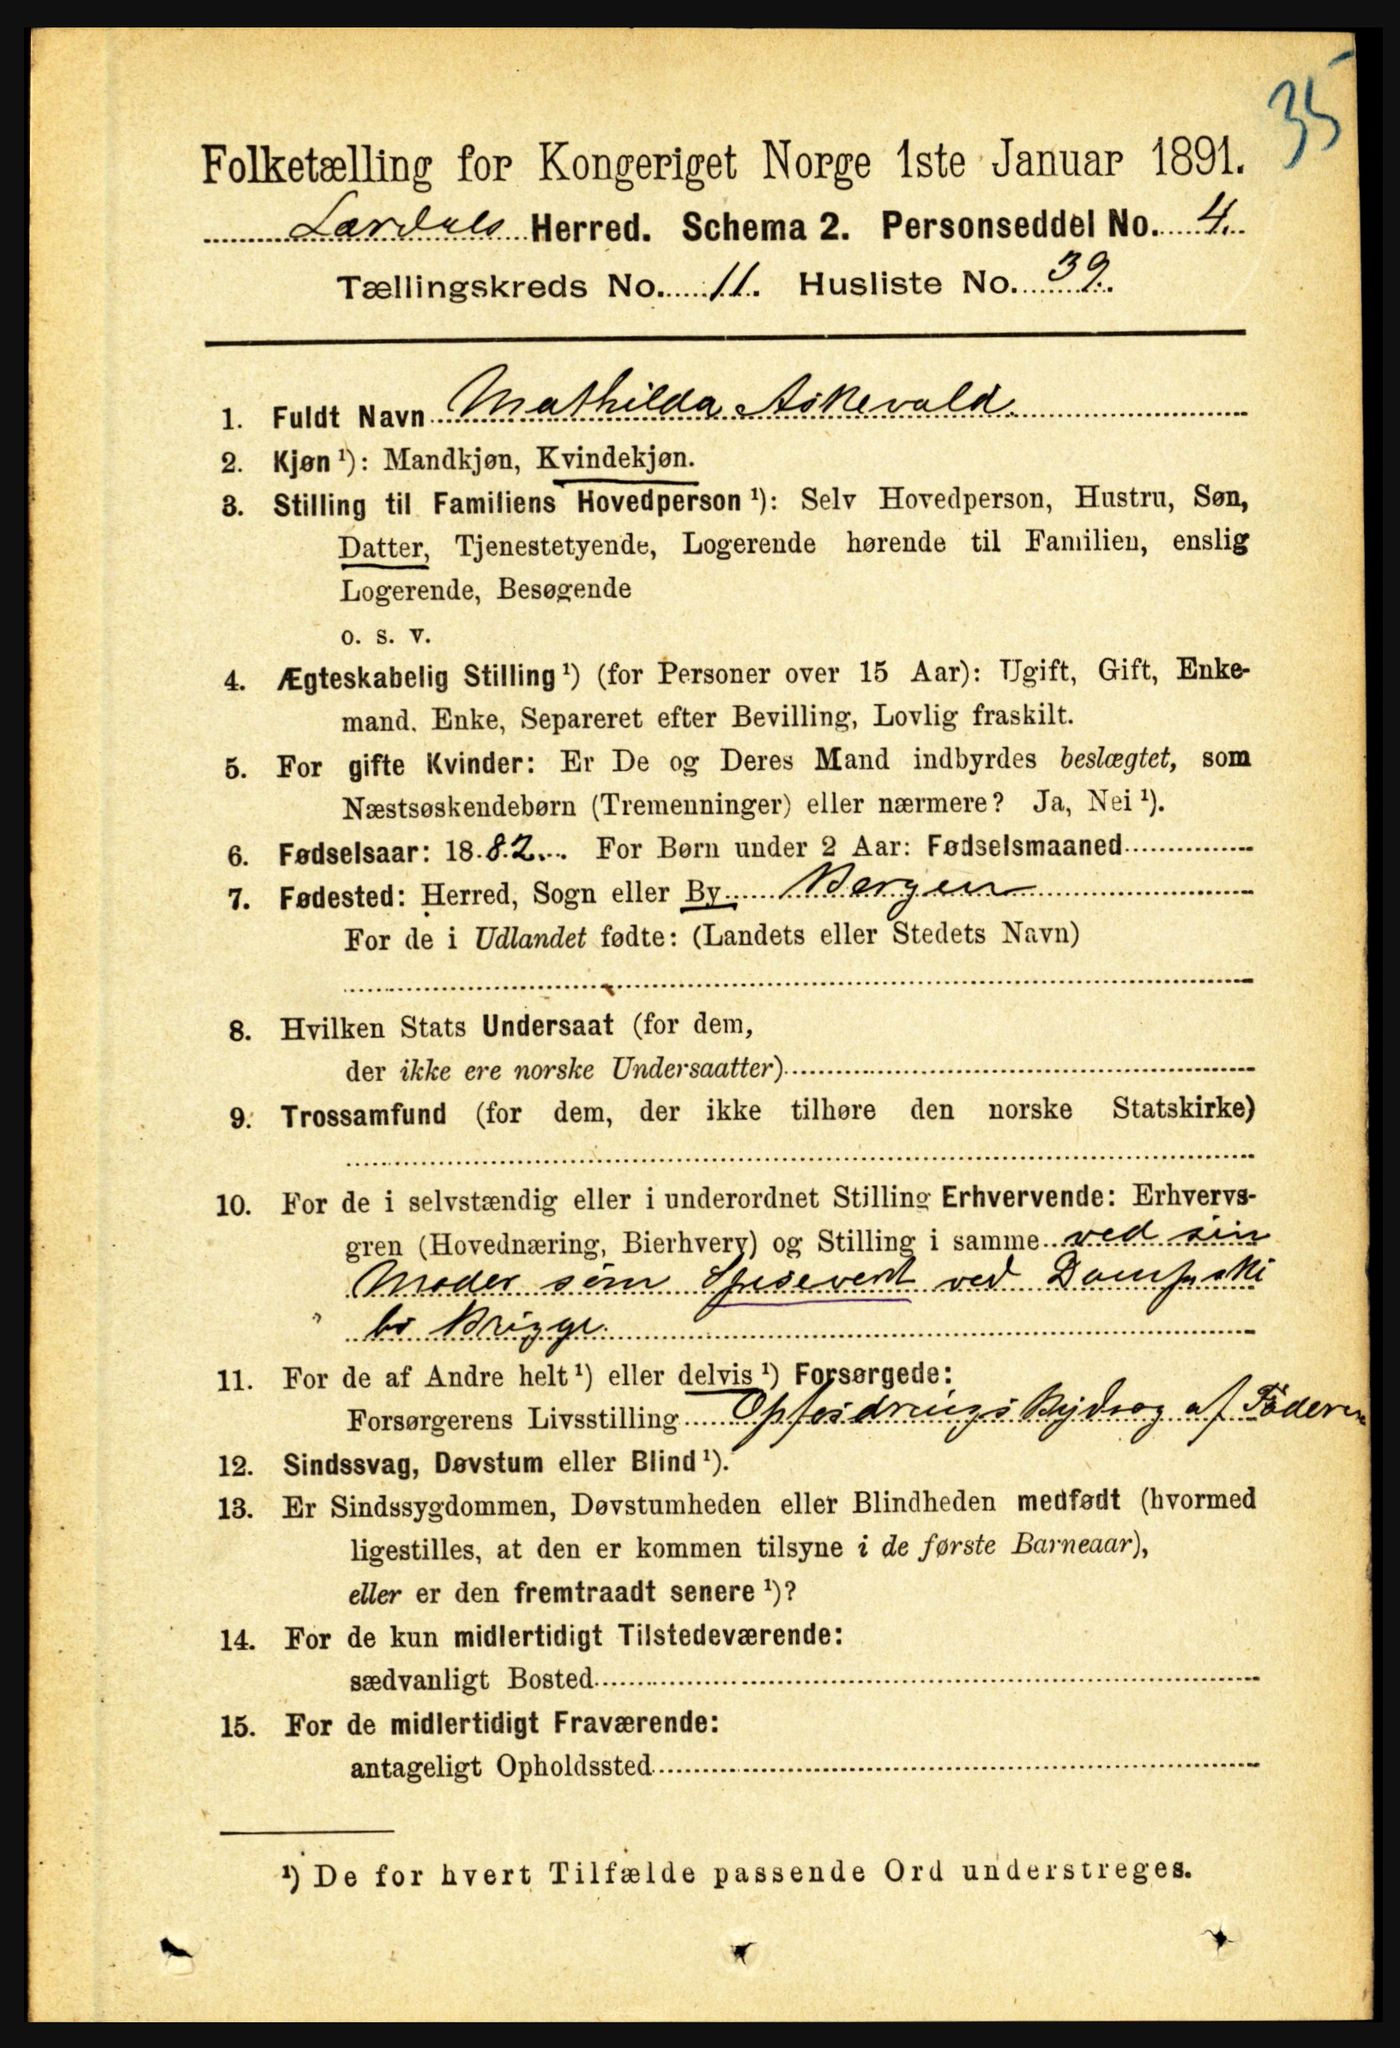 35
Folketælling for Kongeriget Norge 1ste Januar 1891.
Lærdals Herred. Schema 2. Personseddel No. 4.
Tællingskreds No. 11. Husliste No. 39.
1. Fuldt Navn Mathilda Askevold
2. Kjøn ¹): Mandkjøn, Kvindekjøn.
3. Stilling til Familiens Hovedperson ¹): Selv Hovedperson, Hustru, Søn,
Datter, Tjenestetyende, Logerende hørende til Familien, enslig
Logerende, Besøgende
o. s. v.
4. Ægteskabelig Stilling ¹) (for Personer over 15 Aar): Ugift, Gift, Enke-
mand, Enke, Separeret efter Bevilling, Lovlig fraskilt.
5. For gifte Kvinder: Er De og Deres Mand indbyrdes beslægtet, som
Næstsøskendebørn (Tremenninger) eller nærmere? Ja, Nei ¹).
6. Fødselsaar: 1882. For Børn under 2 Aar: Fødselsmaaned
7. Fødested: Herred, Sogn eller By Bergen
For de i Udlandet fødte: (Landets eller Stedets Navn)
8. Hvilken Stats Undersaat (for dem,
der ikke ere norske Undersaatter)
9. Trossamfund (for dem, der ikke tilhøre den norske Statskirke)
10. For de i selvstændig eller i underordnet Stilling Erhvervende: Erhvervs-
gren (Hovednæring, Bierhverv) og Stilling i samme ved sin
Moder som Spisevert ved Dampski
bs Brygge.
11. For de af Andre helt ¹) eller delvis ¹) Forsørgede:
Forsørgerens Livsstilling Opfostrings Bidrag af Faderen
12. Sindssvag, Døvstum eller Blind ¹).
13. Er Sindssygdommen, Døvstumheden eller Blindheden medfødt (hvormed
ligestilles, at den er kommen tilsyne i de første Barneaar),
eller er den fremtraadt senere ¹)?
14. For de kun midlertidigt Tilstedeværende:
sædvanligt Bosted
15. For de midlertidigt Fraværende:
antageligt Opholdssted
¹) De for hvert Tilfælde passende Ord understreges.